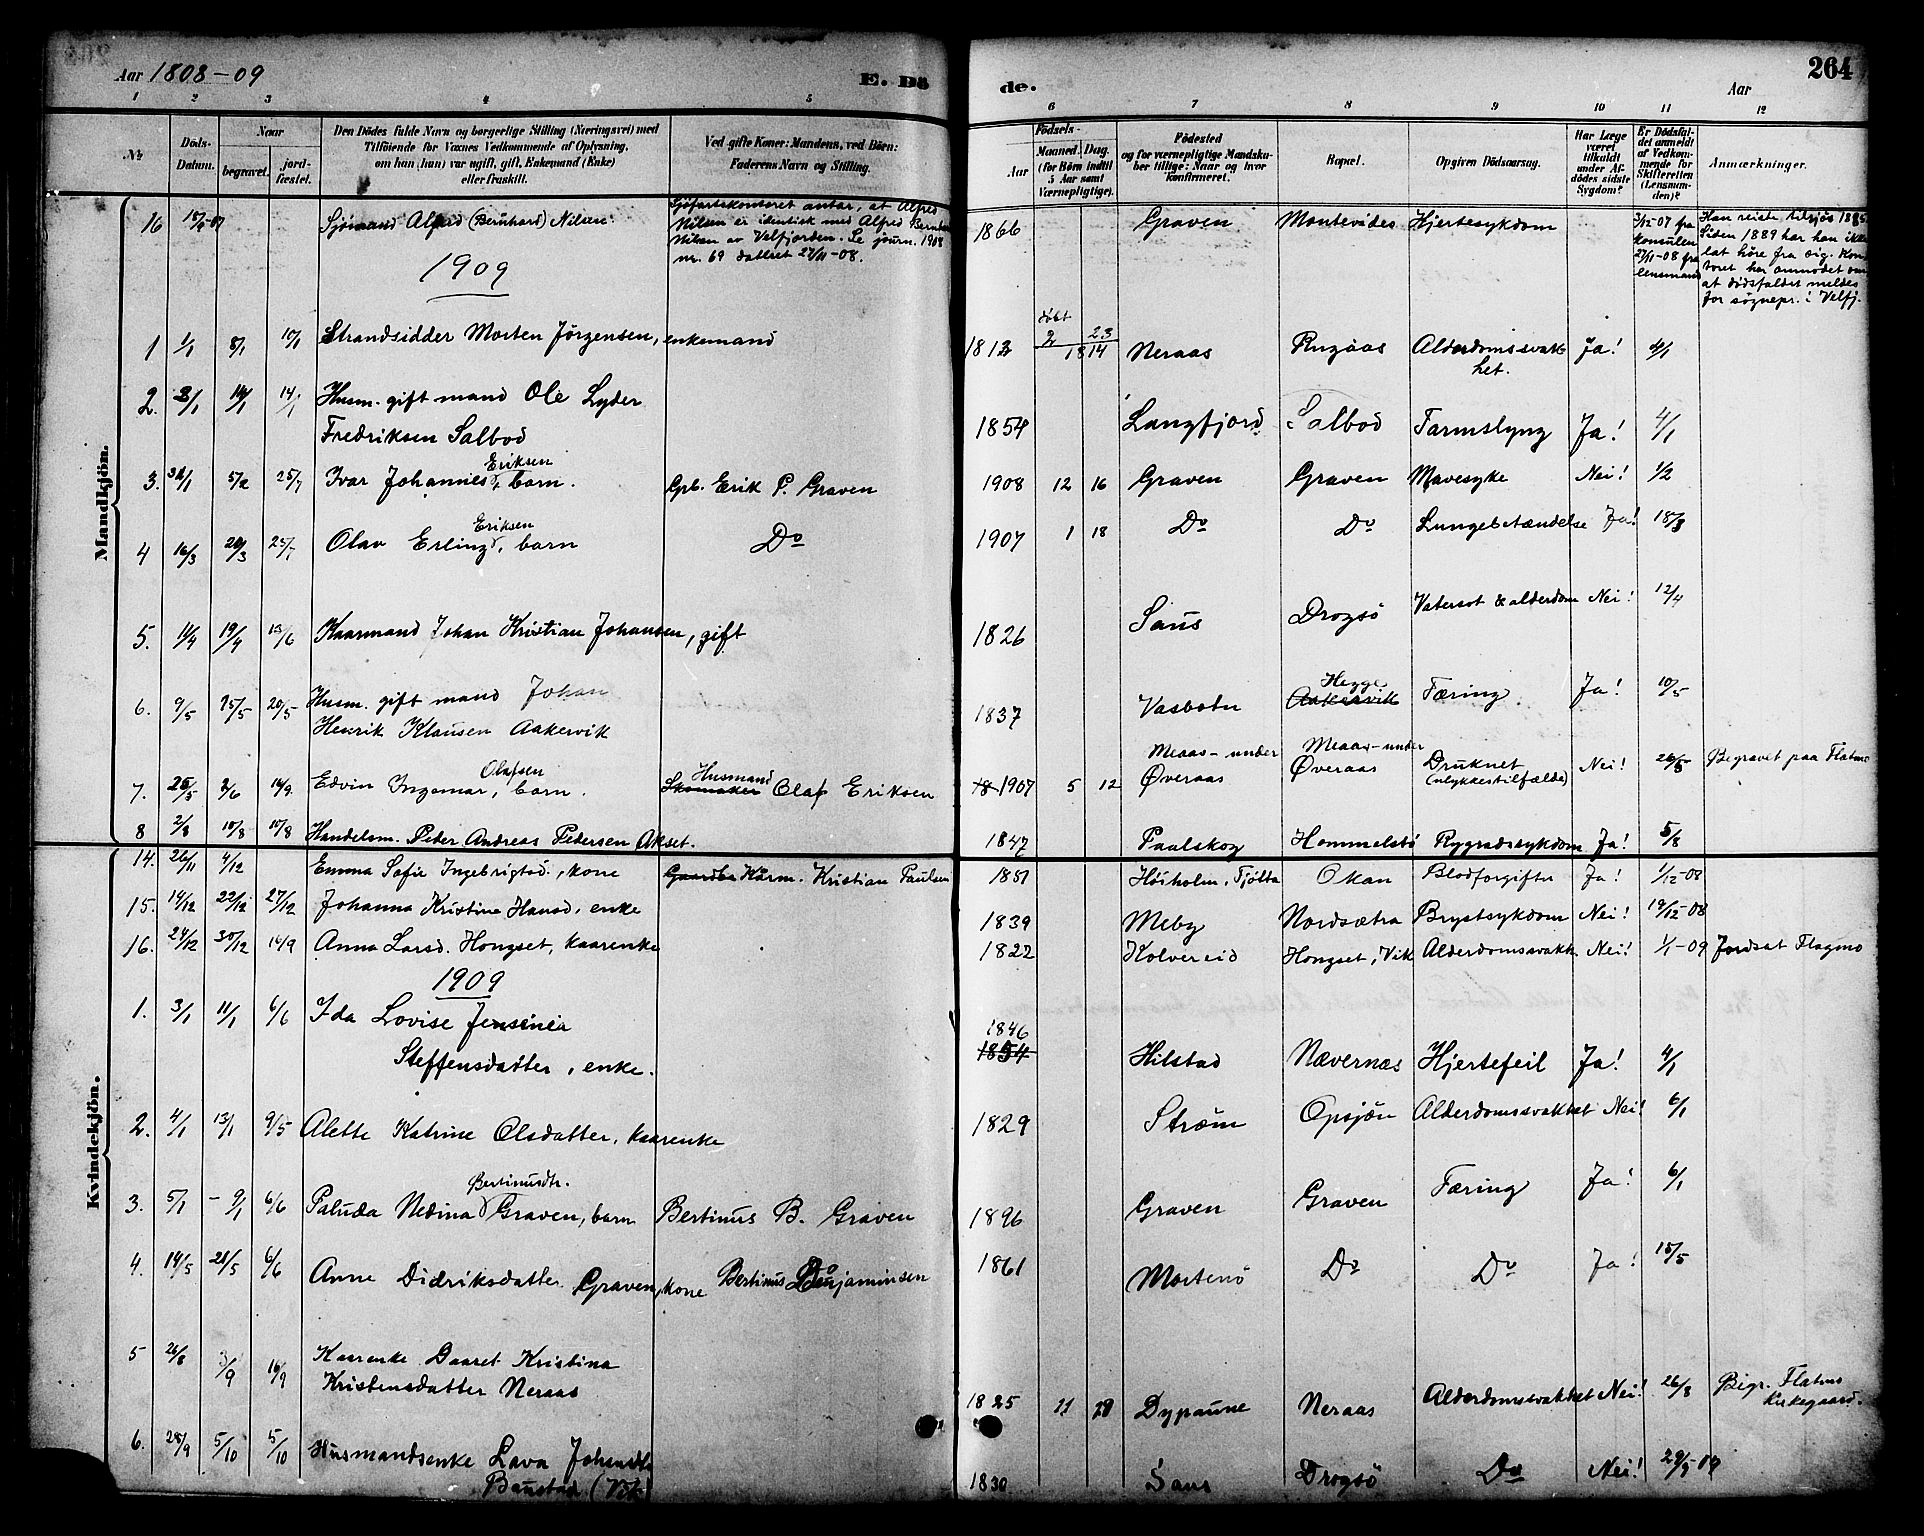 Aar 1808-09
E. Dö
de.
Aar
264
1 2 3 4 5 6 7 8 9 10 11 12
№
Döds-Datum.
Naar
begravet.
jord-fæstet.
Den Dödes fulde Navn og borgerlige Stilling (Næringsvei) med
Tilföiende for Voxnes Vedkommende af Oplysning,
om han (hun) var ugift, gift, Enkemand (Enke)
eller fraskilt.
Ved gifte Koner: Mandens, ved Börn:
Faderens Navn og Stilling.
Födsels-
Aar
Maaned. Dag.
(for Börn indtil
5 Aar samt
Værnepligtige).
Födested
og for værnepligtige Mandska-
ber tillige: Naar og hvor
konfirmeret.
Bopæl.
Opgiven Dödsaarsag.
Har Læge
været
tilkaldt
under Af-
dödes sidste
Sygdom?
Er Dödsfal-
det anmeldt
af Vedkom-
mende for
Skifteretten
(Lensman-
den)?
Anmærkninger.
Mandkjön.
16 Sjömand Alfred (Bernhard) Nilsen. Sjöfartskontoret antar, at Alfred
Nilsen er identisk med Alfred Bernhard
Nilsen av Velfjorden. Se journ. 1908
nr. 69 datteret 27/11-08.
1866 Graven Montevideo Hjertesykdom 3/12-07 fra
konsulen
27/11-08 fra
lensmand
Han reiste tilsjös 1885
Siden 1889 har han ikke
lat höre fra sig. Kon-
toret har anmodet om
at dödsfaldet meldes
for sognepr. i Velfj.
1909
1 1/1 8/1 10/1 Strandsidder Morten Jörgensen, enkemand 1812 döbt 2 23 1814 Neraas Rugaas Alderdomssvak-
het. Ja! 4/1
2. 3/1 14/1 14/1 Husm. gift mand Ole Lyder
Fredriksen Salbod 1854 Langfjord Salbod Tarmslyng Ja! 4/1
3. 31/1 5/2 25/7 Ivar Johannes Eriksen, barn. Gpb. Erik P. Graven 1908 12 16 Graven Graven Mavesyke Nei! 1/2
4 16/3 20/3 25/7 Olav Erling Eriksen, barn Do 1907 1 18 Do Do Lungebetændelse Ja! 18/3
5. 11/4 19/4 13/6 Kaarmand Johan Kristian Johansen, gift 1826 Saus Drogsö Vatersot & alderdom Nei! 12/4
6. 9/5 25/5 20/5 Husm. gift mand Johan
Henrik Klausen Aakervik 1837 Vasbotn Aakervik Hegge Tæring Ja! 10/5
7. 25/5 2/6 14/9. Edvin Ingemar Olafsen, barn. Skomaker Husmand Olaf Eriksen 18 1907 5 12 Meaas-under
Överaas Meaas-under
Överaas Druknet
(ulykkestilfælde) Nei! 26/5 Begravet paa Flatmo
8 2/8 10/8 10/8 Handelsm. Peder Andreas Pedersen Akset. 1847 Paalskog Hommelstö Rygradssykdom Ja! 5/8
Kvindekjön.
14. 26/11 4/12 Emma Sofie Ingebrigtsd., kone Gaardbr Kårm. Kristian Paulsen 1851 Höiholm, Tjötta Okan Blodforgiftn Ja! 1/12-08
15. 14/12 22/12 27/12 Johanna Kristine Hansd, enke 1839 Meby Nordsætra Brystsykdom Nei! 19/12-08
16. 24/12 30/12 14/9 Anna Larsd. Hongset, kaarenke 1822 Kolvereid Hongset, Vik Alderdomssvakh Nei! 1/1-09 Jordsat Flagmo
1909
1. 3/1 11/1 6/6 Ida Lovise Jensinea
Steffensdatter, enke. 1846
1854 Hilstad Nævernes Hjertefeil Ja! 4/1
2. 4/1 13/1 9/5 Alette Katrine Olsdatter, kaarenke 1829 Ström Opsjön Alderdomssvakhet Nei! 6/1
3. 5/1 - 9/1 6/6 Paluda Nedina Bertinusdtr. Graven, barn Bertinus B. Graven 1896 Graven Graven Tæring Ja! 6/1
4. 14/5 21/5 6/6 Anne Didriksdatter Graven, kone Bertinus Benjaminsen 1861 Mortenö Do Do Ja! 15/5
5 26/8 3/9 16/9 Kaarenke Baaret Kristina
Kristensdatter Neraas 1825 11 Dypaune Neraas Alderdomssvakhet Nei! 26/8 Begr. Flatmo
Kirkegaard.
6. 28/9 5/10 5/10 Husmandsenke Lava Johansdtr
Baustad 1830 Saus Drogsö Do Nei! 29/9-09